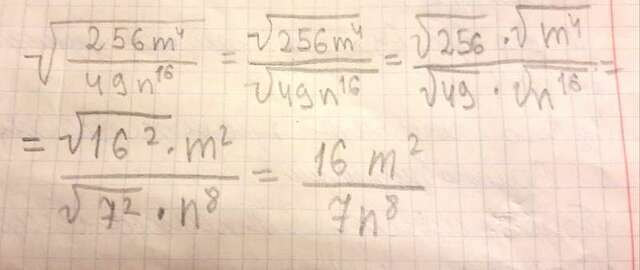 √(256m⁴/49n¹⁶) = √(256m⁴)/√(49n¹⁶) = (√256 · √m⁴)/(√49 · √n¹⁶) =
= (√16² · m²)/(√7² · n⁸) = 16m²/7n⁸